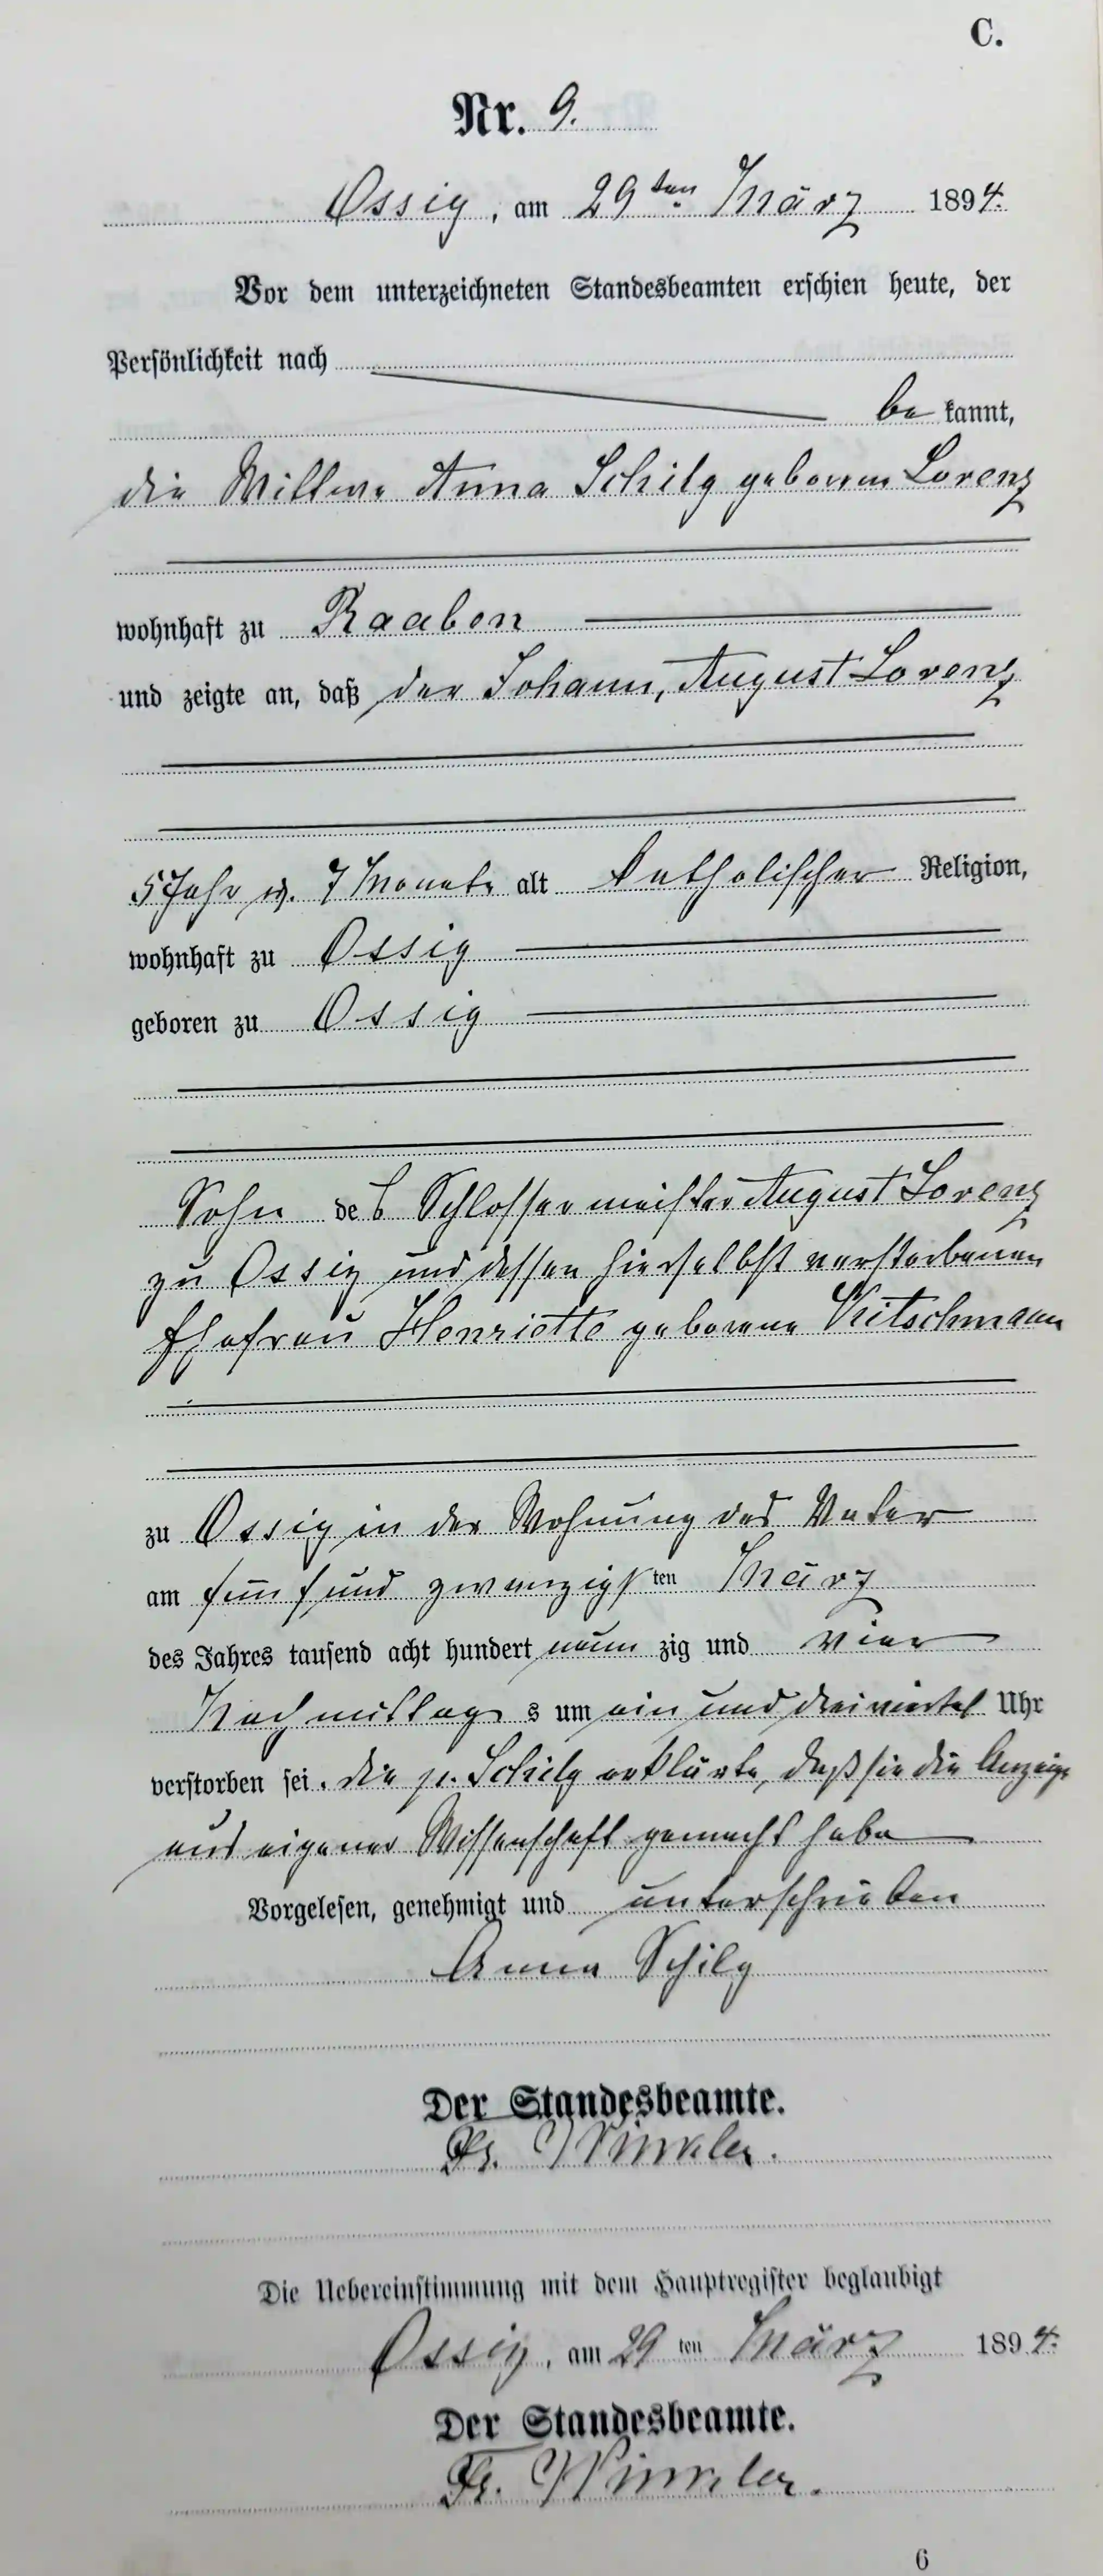 C.
Nr. 9.
Ossig, am 29ten März 1894.
Vor dem unterzeichneten Standesbeamten erschien heute, der
Persönlichkeit nach
be kannt,
die Wittwe Anna Schilg geborene Lorenz
wohnhaft zu Raaben
und zeigte an, daß der Johann, August Lorenz
5 Jahr u. 7 Monate alt katholischer Religion,
wohnhaft zu Ossig
geboren zu Ossig
Sohn des Schlossermeister August Lorenz
zu Ossig und dessen hierselbst verstorbenen
Ehefrau Henriette geborene
zu Ossig in der Wohnung des Vater
am fünf und zwanzigsten März
des Jahres tausend acht hundert neun zig und vier
Nachmittag s um ein und dreiviertel Uhr
verstorben sei. Die p. Schilg erklärte, daß sie die Anzeige
aus eigener Wissenschaft gemacht habe
Vorgelesen, genehmigt und unterschrieben
Anna Schilg
Der Standesbeamte.
Fr. Winkler.
Die Uebereinstimmung mit dem Hauptregister beglaubigt
Ossig, am 29 ten März 1894.
Der Standesbeamte.
Fr. Winkler.
6